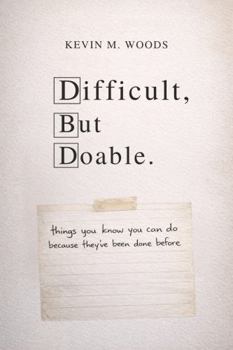 KEVIN M. WOODS
Difficult,
But
Doable.
things you know you can do
because they've been done before